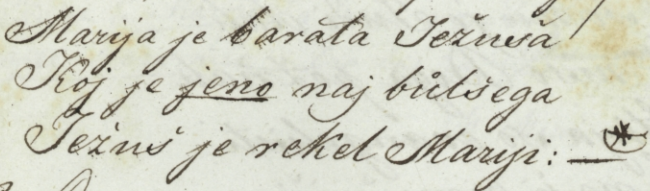 Marija je barata Ježuša
Koj je jeno naj bůlšega
Ježuš je rekel Mariji: — *